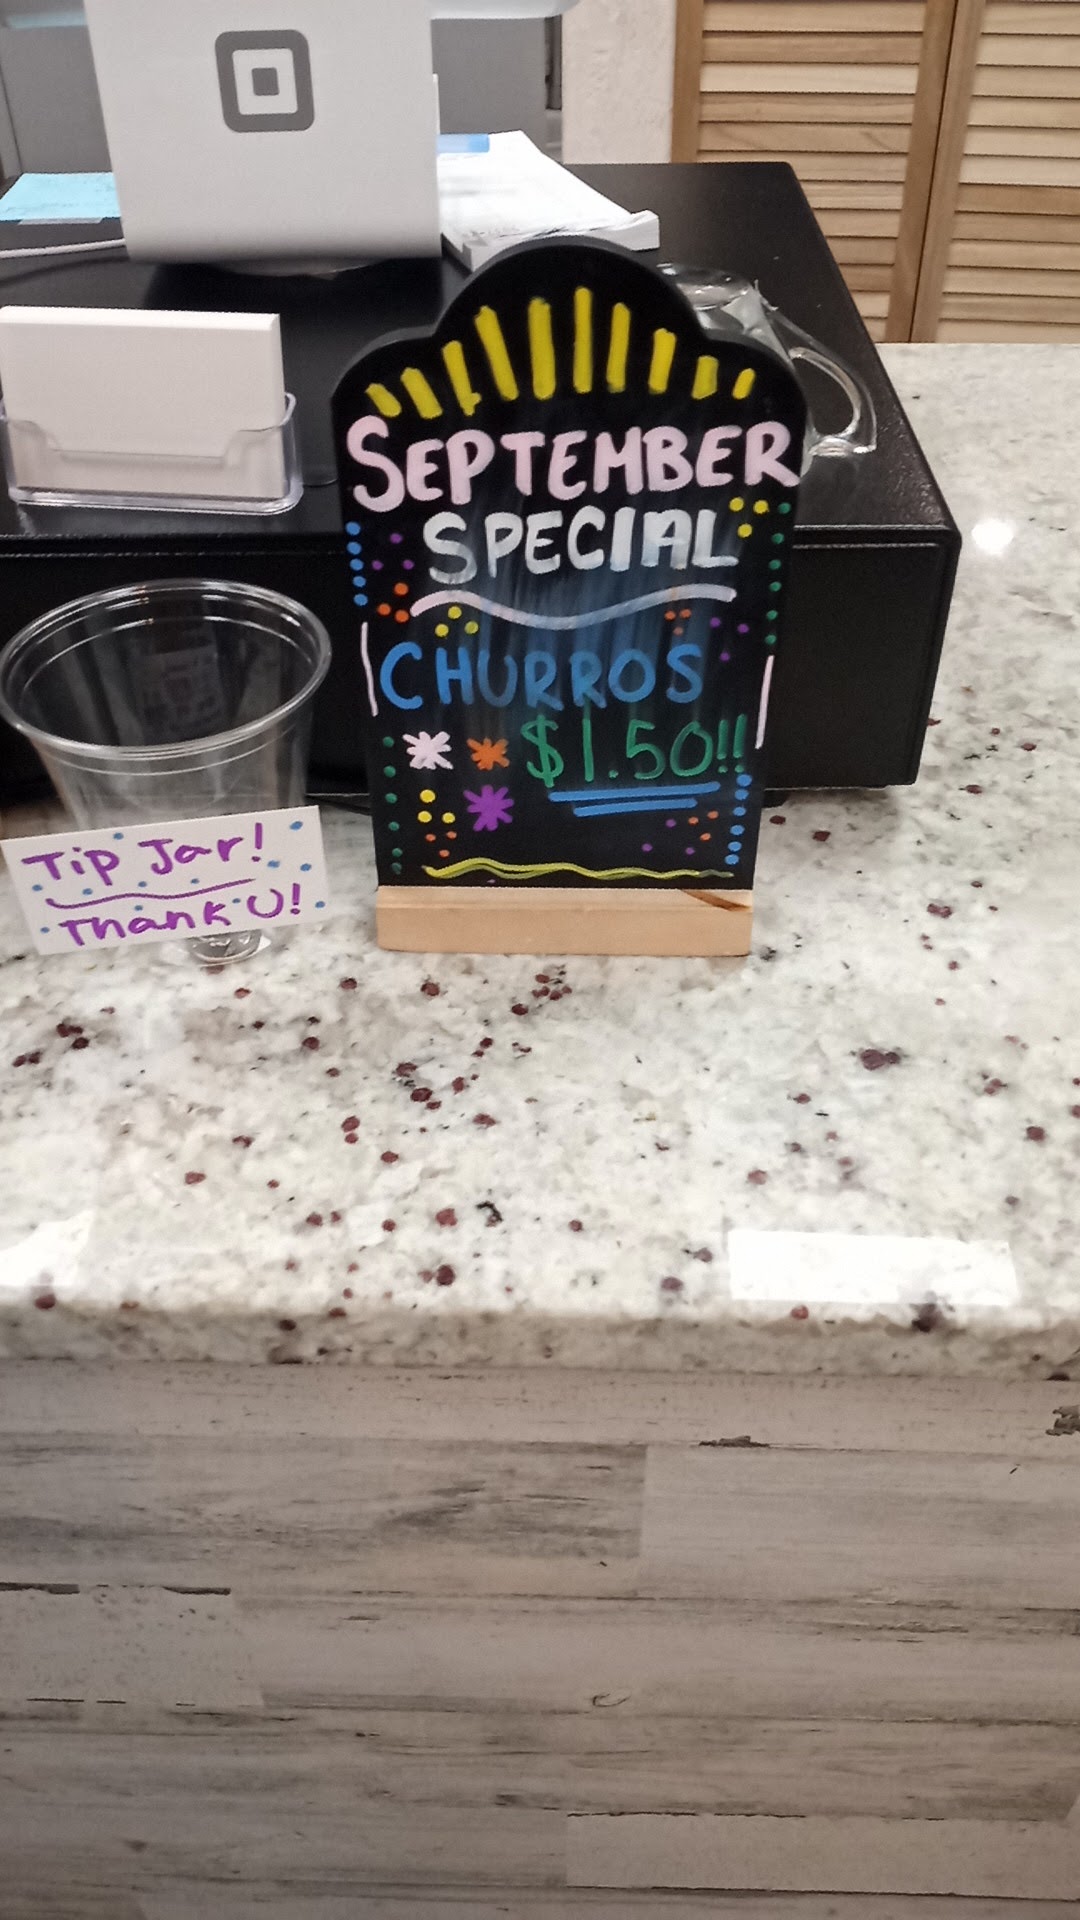 SEPTEMBER
SPECIAL
CHURROS
$1.50!!
Tip Jar!
Thank U!